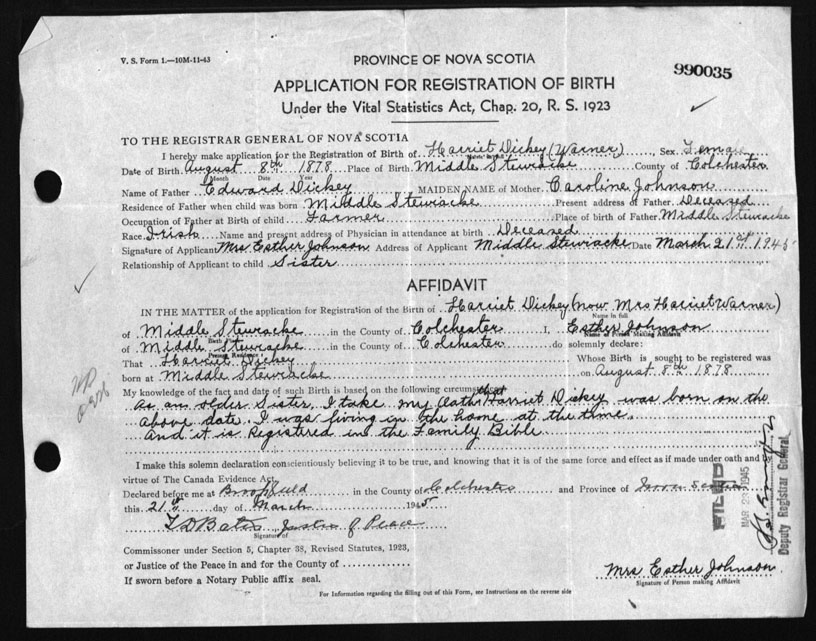 V. S. Form 1.—10M-11-43
PROVINCE OF NOVA SCOTIA
990035
APPLICATION FOR REGISTRATION OF BIRTH
Under the Vital Statistics Act, Chap. 20, R. S. 1923
TO THE REGISTRAR GENERAL OF NOVA SCOTIA
I hereby make application for the Registration of Birth of Harriet Dickey (Warner), Sex Female
Date of Birth August 8th 1878 Place of Birth Middle Stewiacke County of Colchester
Month Date Year
Name of Father Edward Dickey MAIDEN NAME of Mother Caroline Johnson
Residence of Father when child was born Middle Stewiacke Present address of Father Deceased
Occupation of Father at Birth of child Farmer Place of birth of Father Middle Stewiacke
Race Irish Name and present address of Physician in attendance at birth Deceased
Signature of Applicant Mrs Esther Johnson Address of Applicant Middle Stewiacke Date March 21st 1945
Relationship of Applicant to child Sister
AFFIDAVIT
IN THE MATTER of the application for Registration of the Birth of Harriet Dickey (now Mrs Harriet Warner)
Name in full
of Middle Stewiacke in the County of Colchester I, Esther Johnson
Birth Place Name of Person Making Affidavit
of Middle Stewiacke in the County of Colchester do solemnly declare:
Present Residence
That Harriet Dickey Whose Birth is sought to be registered was
born at Middle Stewiacke on August 8th 1878
My knowledge of the fact and date of such Birth is based on the following circumstances
As an older Sister, I take my Oath that Harriet Dickey was born on the
above date. I was living in the home at the time.
And it is Registered in the Family Bible
I make this solemn declaration conscientiously believing it to be true, and knowing that it is of the same force and effect as if made under oath and by
virtue of The Canada Evidence Act.
Declared before me at Brookfield in the County of Colchester and Province of Nova Scotia
this 21st day of March 1945
Justice of Peace
Signature of
Commissoner under Section 5, Chapter 38, Revised Statutes, 1923,
or Justice of the Peace in and for the County of
If sworn before a Notary Public affix seal.
Mrs Esther Johnson
Signature of Person making Affidavit
For Information regarding the filling out of this Form, see Instructions on the reverse side
FILED
MAR 23 1945
Deputy Registrar General